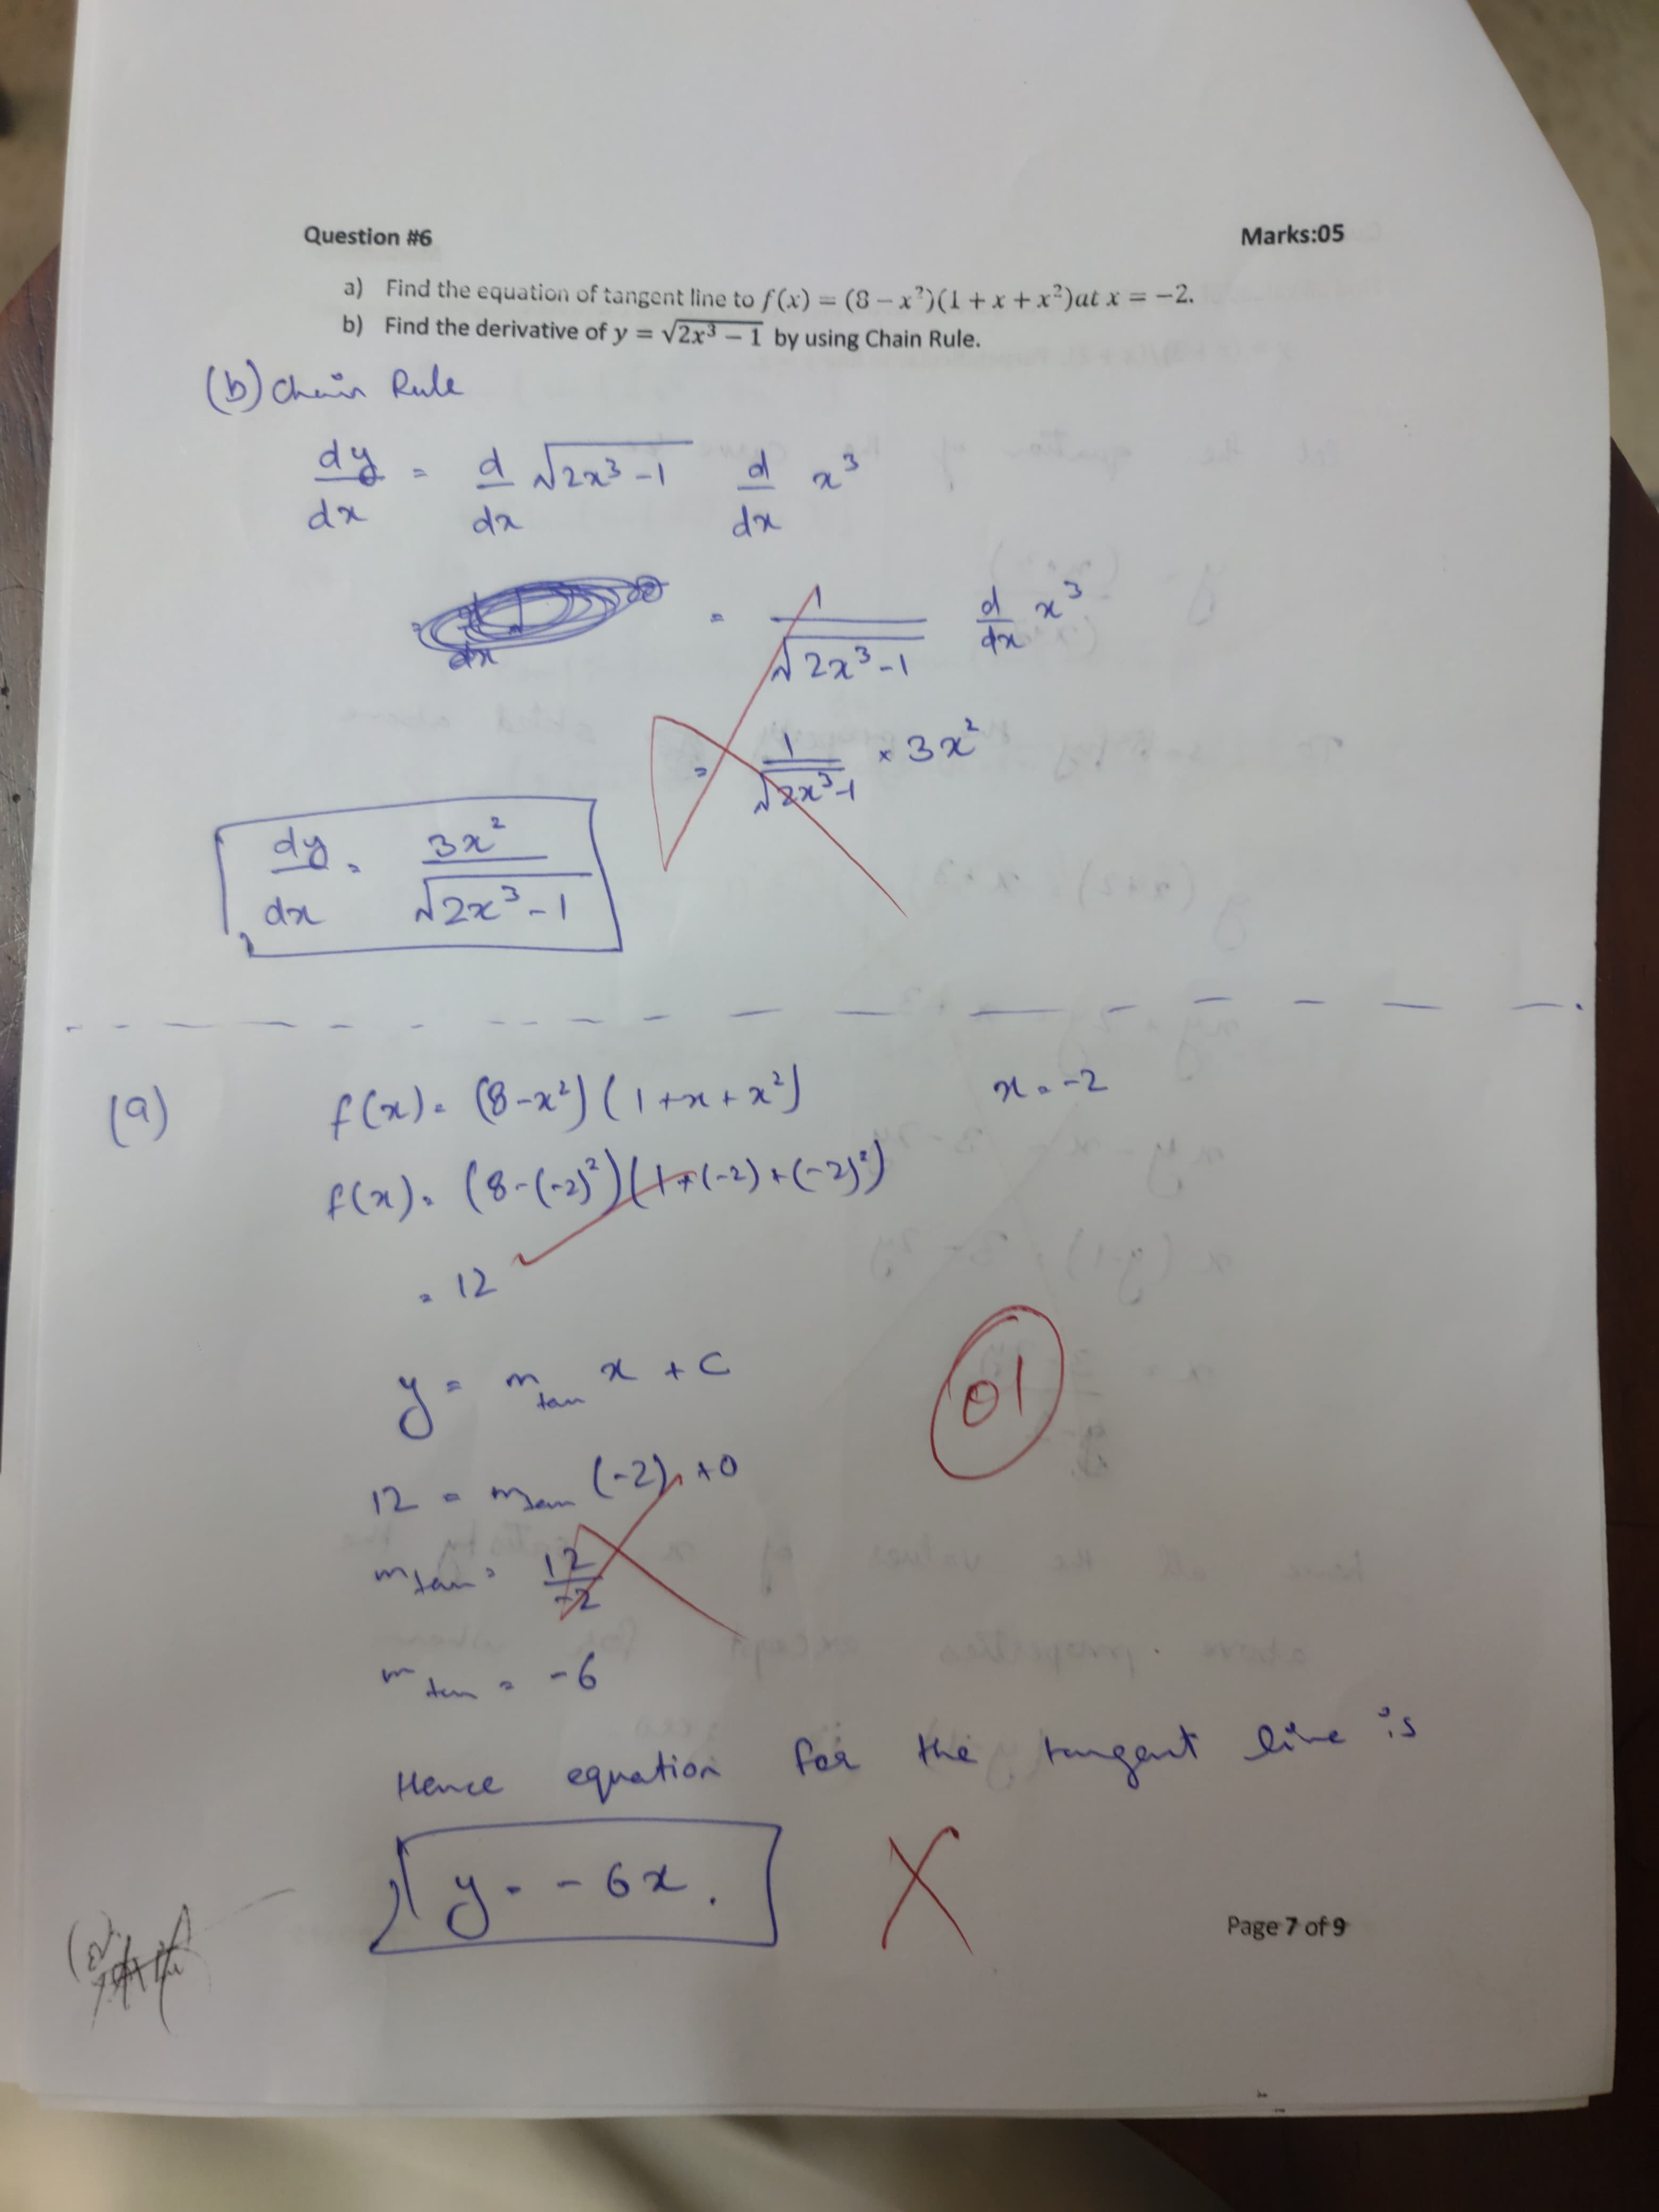 Question #6 Marks:05
a) Find the equation of tangent line to f(x) = (8 − x²)(1 + x + x²)at x = −2.
b) Find the derivative of y = √(2x³ − 1) by using Chain Rule.
(b) Chain Rule
dy/dx = d/dx √(2x³-1) d/dx x³
= 1/√(2x³-1) d/dx x³
= 1/√(2x³-1) × 3x²
dy/dx = 3x²/√(2x³-1)
(a) f(x) = (8-x²)(1+x+x²) x = -2
f(x) = (8-(-2)²)(1+(-2)+(-2)²)
= 12
y = m tan x + C
01
12 = m tan (-2) + 0
m tan = 12/-2
m tan = -6
Hence equation for the tangent line is
y = -6x.
Page 7 of 9